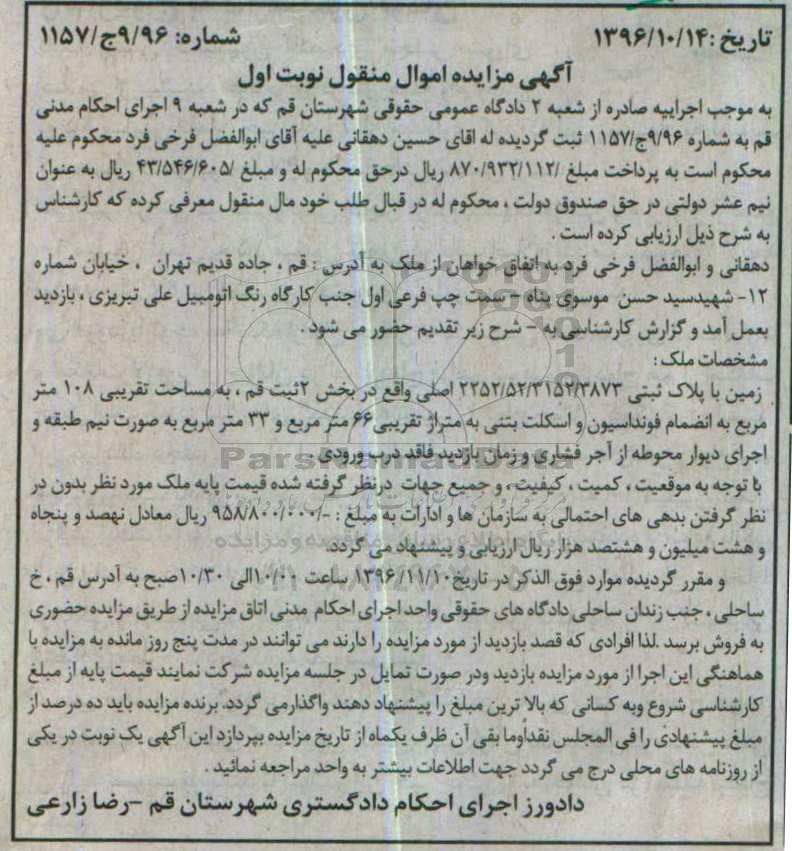 تاریخ :۱۳۹۶/۱۰/۱۴ شماره: ۹/۹۶ج/۱۱۵۷
آگهی مزایده اموال منقول نوبت اول
به موجب اجراییه صادره از شعبه ۲ دادگاه عمومی حقوقی شهرستان قم که در شعبه ۹ اجرای احکام مدنی
قم به شماره ۹/۹۶ج/۱۱۵۷ ثبت گردیده له اقای حسین دهقانی علیه آقای ابوالفضل فرخی فرد محکوم علیه
محکوم است به پرداخت مبلغ /۸۷۰/۹۳۲/۱۱۲ ریال درحق محکوم له و مبلغ /۴۳/۵۴۶/۶۰۵ ریال به عنوان
نیم عشر دولتی در حق صندوق دولت ، محکوم له در قبال طلب خود مال منقول معرفی کرده که کارشناس
به شرح ذیل ارزیابی کرده است .
دهقانی و ابوالفضل فرخی فرد به اتفاق خواهان از ملک به آدرس : قم ، جاده قدیم تهران ، خیابان شماره
۱۲- شهیدسید حسن موسوی پناه – سمت چپ فرعی اول جنب کارگاه رنگ اتومبیل علی تبریزی ، بازدید
بعمل آمد و گزارش کارشناسی به – شرح زیر تقدیم حضور می شود .
مشخصات ملک :
زمین با پلاک ثبتی ۲۲۵۲/۵۲/۳۱۵۲/۳۸۷۳ اصلی واقع در بخش ۲ثبت قم ، به مساحت تقریبی ۱۰۸ متر
مربع به انضمام فونداسیون و اسکلت بتنی به متراژ تقریبی۶۶ متر مربع و ۳۳ متر مربع به صورت نیم طبقه و
اجرای دیوار محوطه از آجر فشاری و زمان بازدید فاقد درب ورودی .
با توجه به موقعیت ، کمیت ، کیفیت ، و جمیع جهات درنظر گرفته شده قیمت پایه ملک مورد نظر بدون در
نظر گرفتن بدهی های احتمالی به سازمان ها و ادارات به مبلغ : -/۹۵۸/۸۰۰/۰۰۰ ریال معادل نهصد و پنجاه
و هشت میلیون و هشتصد هزار ریال ارزیابی و پیشنهاد می گردد.
و مقرر گردیده موارد فوق الذکر در تاریخ۱۳۹۶/۱۱/۱۰ ساعت ۱۰/۰۰الی ۱۰/۳۰صبح به آدرس قم ، خ
ساحلی ، جنب زندان ساحلی دادگاه های حقوقی واحد اجرای احکام مدنی اتاق مزایده از طریق مزایده حضوری
به فروش برسد .لذا افرادی که قصد بازدید از مورد مزایده را دارند می توانند در مدت پنج روز مانده به مزایده با
هماهنگی این اجرا از مورد مزایده بازدید ودر صورت تمایل در جلسه مزایده شرکت نمایند قیمت پایه از مبلغ
کارشناسی شروع وبه کسانی که بالا ترین مبلغ را پیشنهاد دهند واگذارمی گردد. برنده مزایده باید ده درصد از
مبلغ پیشنهادی را فی المجلس نقداًوما بقی آن ظرف یکماه از تاریخ مزایده بپردازد این آگهی یک نوبت در یکی
از روزنامه های محلی درج می گردد جهت اطلاعات بیشتر به واحد مراجعه نمائید .
دادورز اجرای احکام دادگستری شهرستان قم –رضا زارعی
ParsNamadData